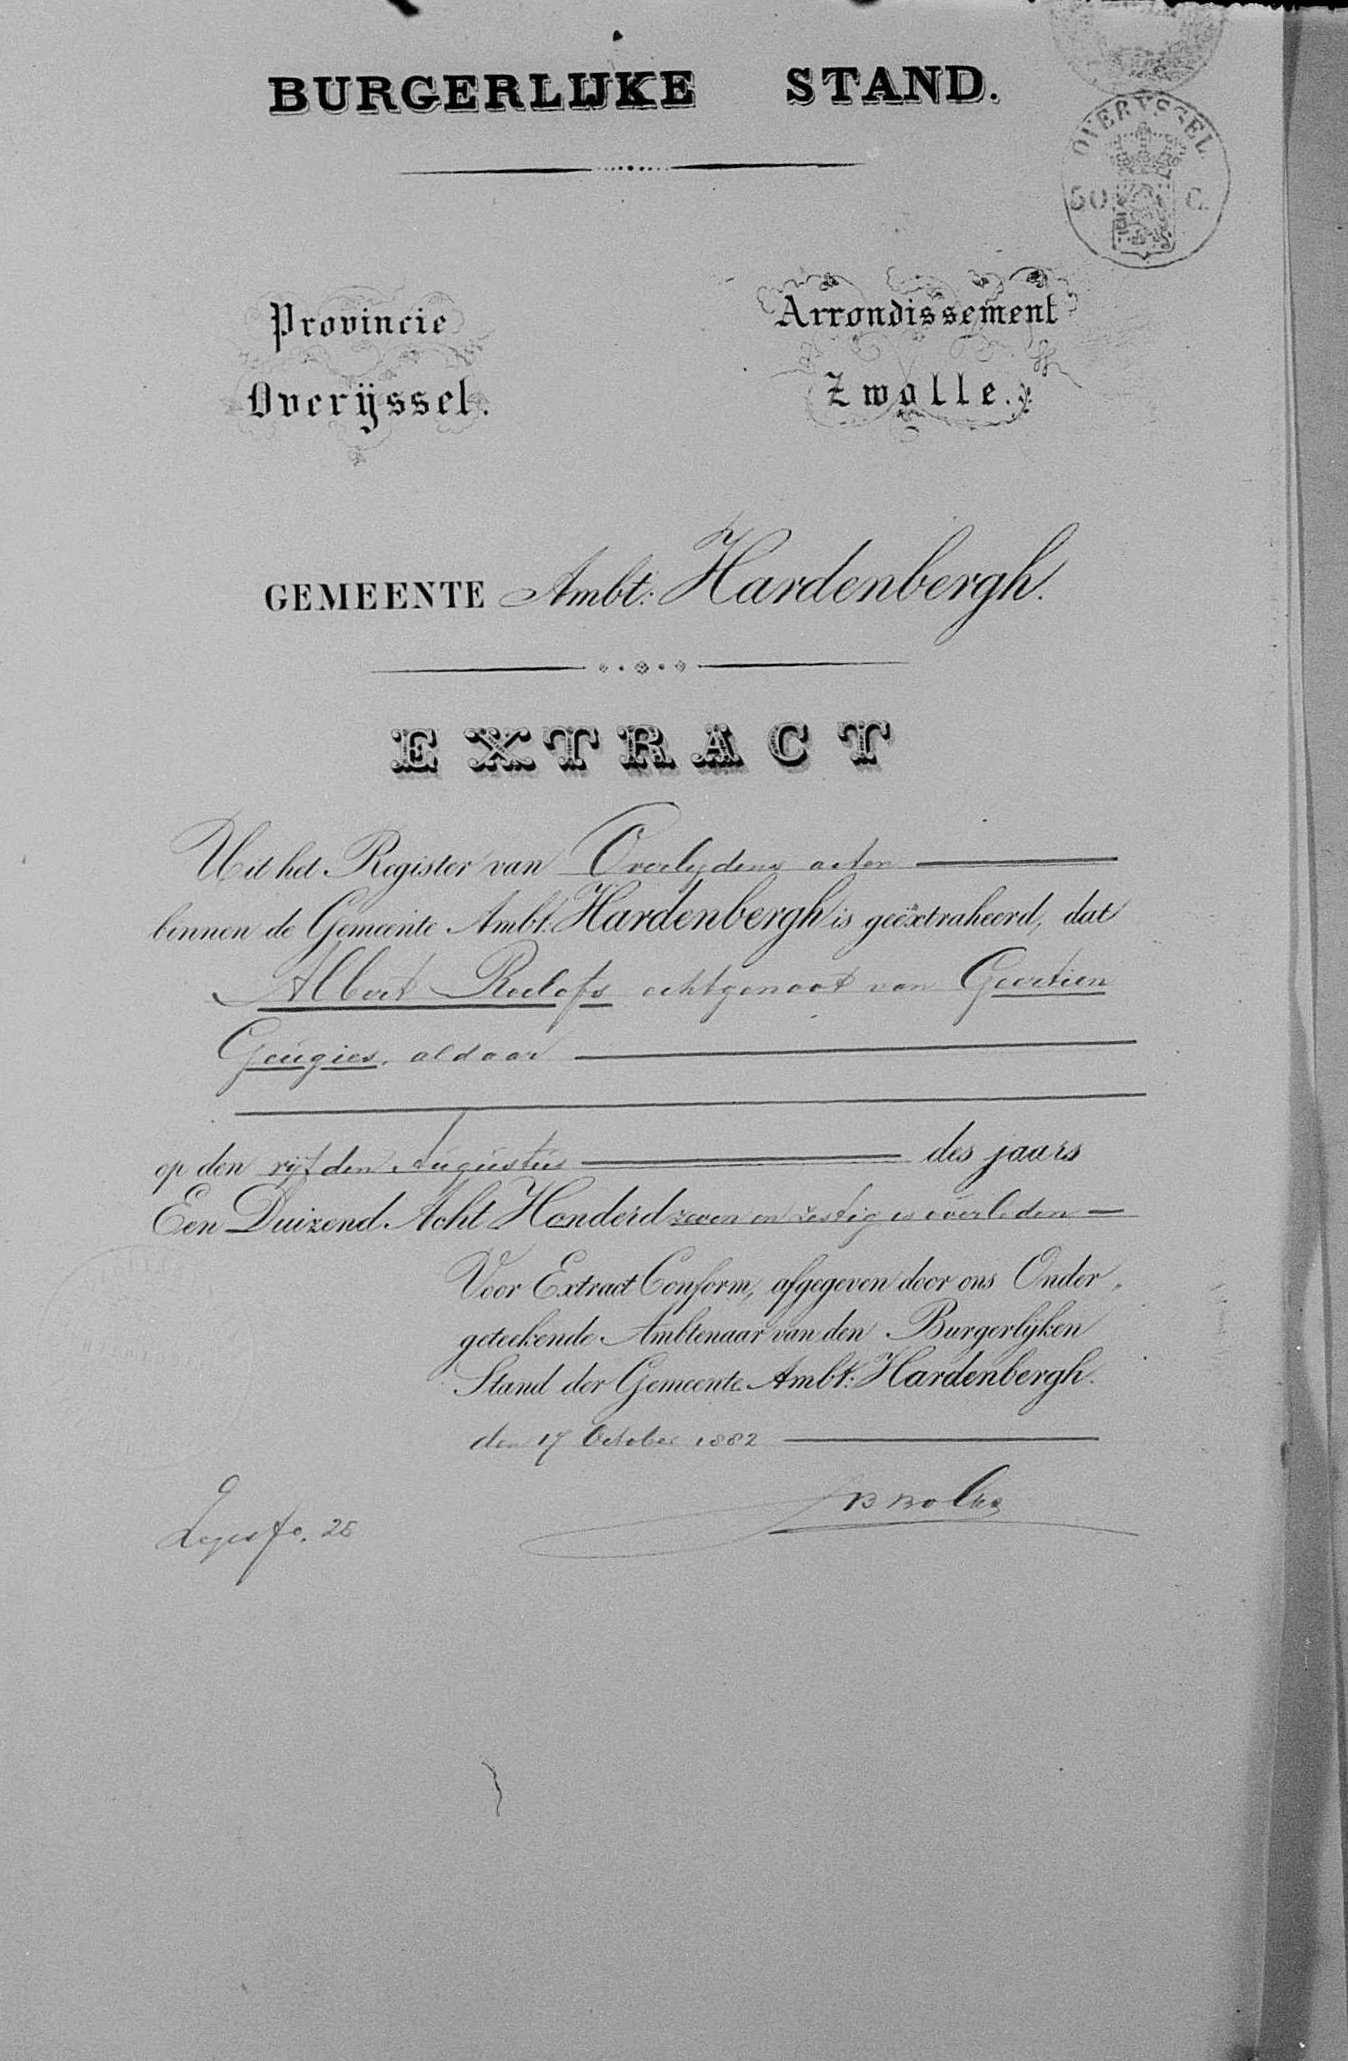 BURGERLIJKE STAND.
OVERYSSEL
50 C.
Provincie
Overijssel.
Arrondissement
Zwolle.
GEMEENTE Ambt: Hardenbergh.
EXTRACT
Uit het Register van Overlydens acten
binnen de Gemeente Ambt: Hardenbergh is geëxtraheerd, dat
Albert Roelofs echtgenoot van Geertien
Geugies, aldaar
op den vijfden Augustus des jaars
Een Duizend Acht Honderd zeven en zestig is overleden
Voor Extract Conform, afgegeven door ons Onder
geteekende Ambtenaar van den Burgerlyken
Stand der Gemeente Ambt: Hardenbergh.
den 17 October 1882
Leges fo. 25